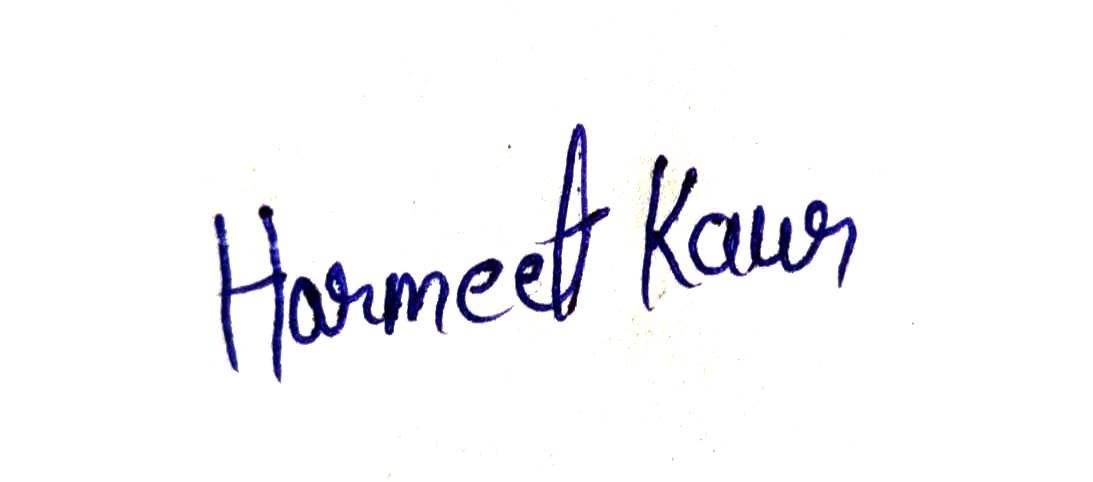 Harmeet Kaur